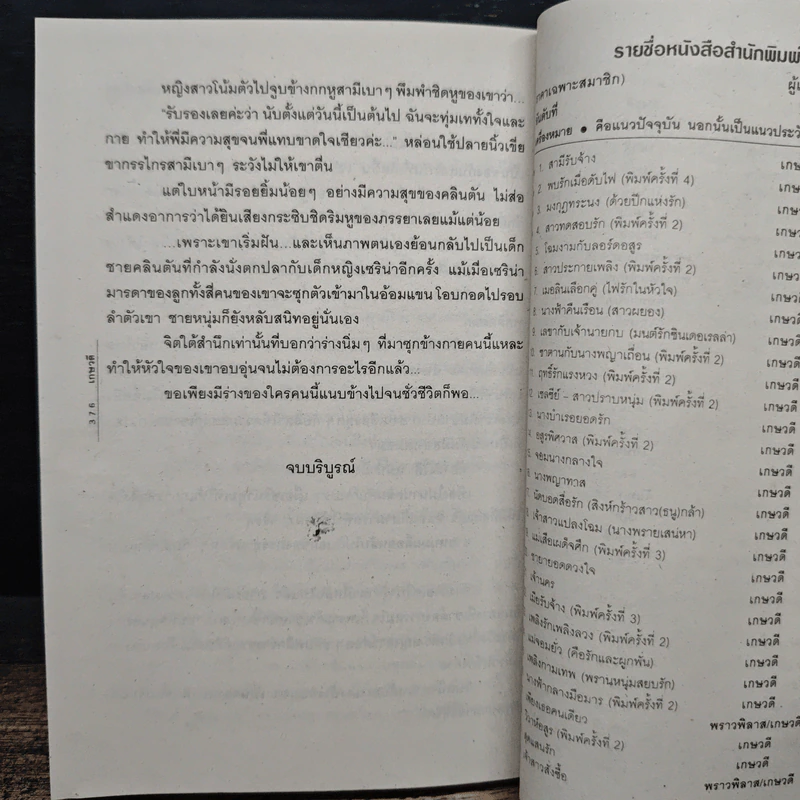 หญิงสาวโน้มตัวไปจูบข้างกกหูสามีเบาๆ พึมพำชิดหูของเขาว่า...
"รับรองเลยค่ะว่า นับตั้งแต่วันนี้เป็นต้นไป ฉันจะทุ่มเททั้งใจและ
กาย ทำให้พี่มีความสุขจนพี่แทบขาดใจเชียวค่ะ..." หล่อนใช้ปลายนิ้วเขี่ย
ขากรรไกรสามีเบาๆ ระวังไม่ให้เขาตื่น
แต่ใบหน้ามีรอยยิ้มน้อยๆ อย่างมีความสุขของคลินตัน ไม่ส่อ
สำแดงอาการว่าได้ยินเสียงกระซิบชิดริมหูของภรรยาเลยแม้แต่น้อย
...เพราะเขาเริ่มฝัน...และเห็นภาพตนเองย้อนกลับไปเป็นเด็ก
ชายคลินตันที่กำลังนั่งตกปลากับเด็กหญิงเซริน่าอีกครั้ง แม้เมื่อเซริน่า
มารดาของลูกทั้งสี่คนของเขาจะซุกตัวเข้ามาในอ้อมแขน โอบกอดไปรอบ
ลำตัวเขา ชายหนุ่มก็ยังหลับสนิทอยู่นั่นเอง
จิตใต้สำนึกเท่านั้นที่บอกว่าร่างนิ่มๆ ที่มาซุกข้างกายคนนี้แหละ
ทำให้หัวใจของเขาอบอุ่นจนไม่ต้องการอะไรอีกแล้ว...
ขอเพียงมีร่างของใครคนนี้แนบข้างไปจนชั่วชีวิตก็พอ...
จบบริบูรณ์
376 เกษวดี
รายชื่อหนังสือสำนักพิมพ์
เฉพาะสมาชิก)
เครื่องหมาย ● คือแนวปัจจุบัน นอกนั้นเป็นแนวประวั
1. สามีรับจ้าง เกษ
2. พบรักเมื่อดับไฟ (พิมพ์ครั้งที่ 4) เกษ
3. มงกุฎทระนง (ด้วยปีกแห่งรัก) เกษ
4. สาวทดสอบรัก (พิมพ์ครั้งที่ 2) เกษ
5. โฉมงามกับลอร์ดอสูร เกษ
6. สาวประกายเพลิง (พิมพ์ครั้งที่ 2) เกษ
7. เมอลินเลือกคู่ (ไฟรักในหัวใจ) เกษ
8. นางฟ้าคืนเรือน (สาวผยอง) เกษ
9. เลขากับเจ้านายกบ (มนต์รักซินเดอเรลล่า) เกษ
10. ซาตานกับนางพญาเถื่อน (พิมพ์ครั้งที่ 2) เกษวดี
11. ฤทธิ์รักแรงหวง (พิมพ์ครั้งที่ 2) เกษวดี
12. เชลซีย์ - สาวปราบหนุ่ม (พิมพ์ครั้งที่ 2) เกษวดี
นางบำเรอยอดรัก เกษวดี
อสูรพิศวาส (พิมพ์ครั้งที่ 2) เกษวดี
จอมนางกลางใจ เกษวดี
นางพญาทาส เกษวดี
นัดบอดสื่อรัก (สิงห์กร้าวสาว(ธนู)กล้า) เกษวดี
เจ้าสาวแปลงโฉม (นางพรายเสน่หา) เกษวดี
แม่เสือเผด็จศึก (พิมพ์ครั้งที่ 3) เกษวดี
ชายายอดดวงใจ เกษวดี
เจ้านคร เกษวดี
เมียรับจ้าง (พิมพ์ครั้งที่ 3) เกษวดี
เพลิงรักเพลิงลวง (พิมพ์ครั้งที่ 2) เกษวดี
แม่จอมยั่ว (คือรักและผูกพัน) เกษวดี
เพลิงกามเทพ (พรานหนุ่มสยบรัก) เกษวดี
นางฟ้ากลางมือมาร (พิมพ์ครั้งที่ 2) เกษวดี
เพียงเธอคนเดียว พราวพิลาส/เกษวดี
วิวาห์อสูร (พิมพ์ครั้งที่ 2) เกษวดี
สุดแสนรัก เกษวดี
เจ้าสาวสั่งซื้อ พราวพิลาส/เกษวดี